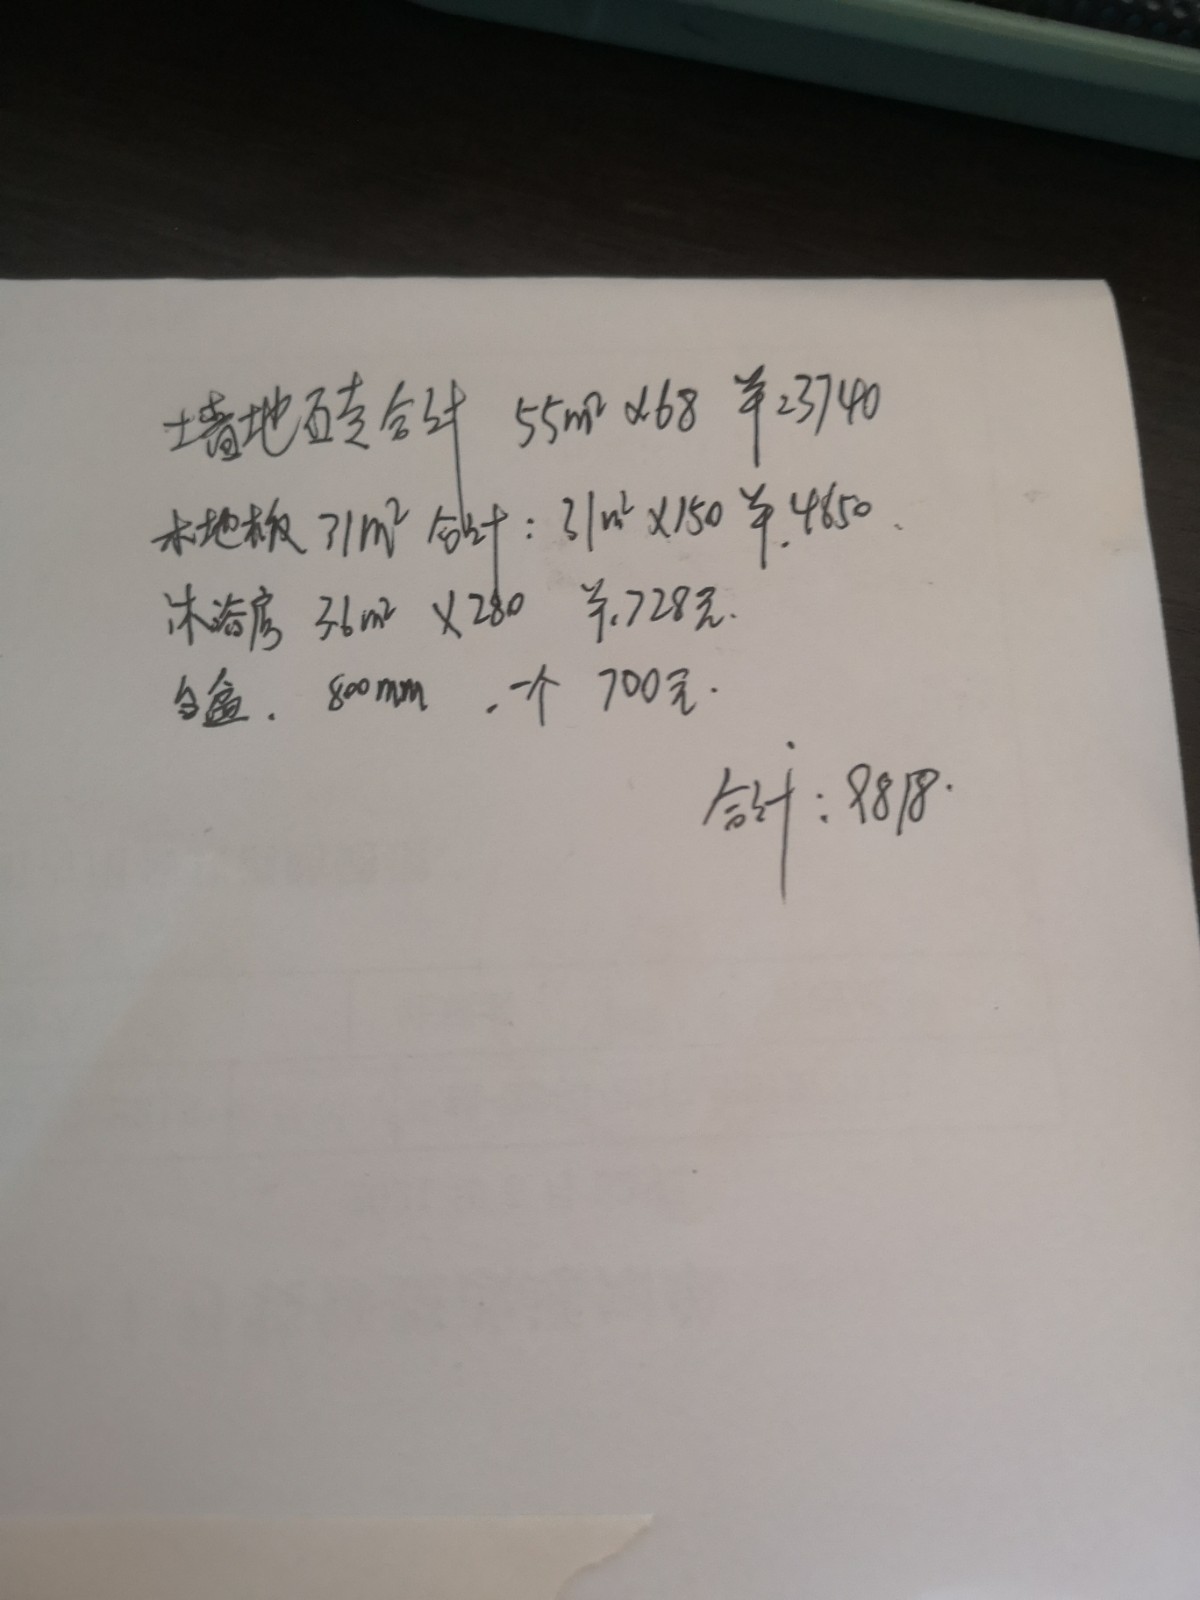 墙地砖合计 55m² ×68 ¥:3740
木地板 31m² 合计:31m² ×150 ¥.4650.
沐浴房 3.6m² ×280 ¥.728元.
台盆. 800mm .一个 700元.
合计:9818.